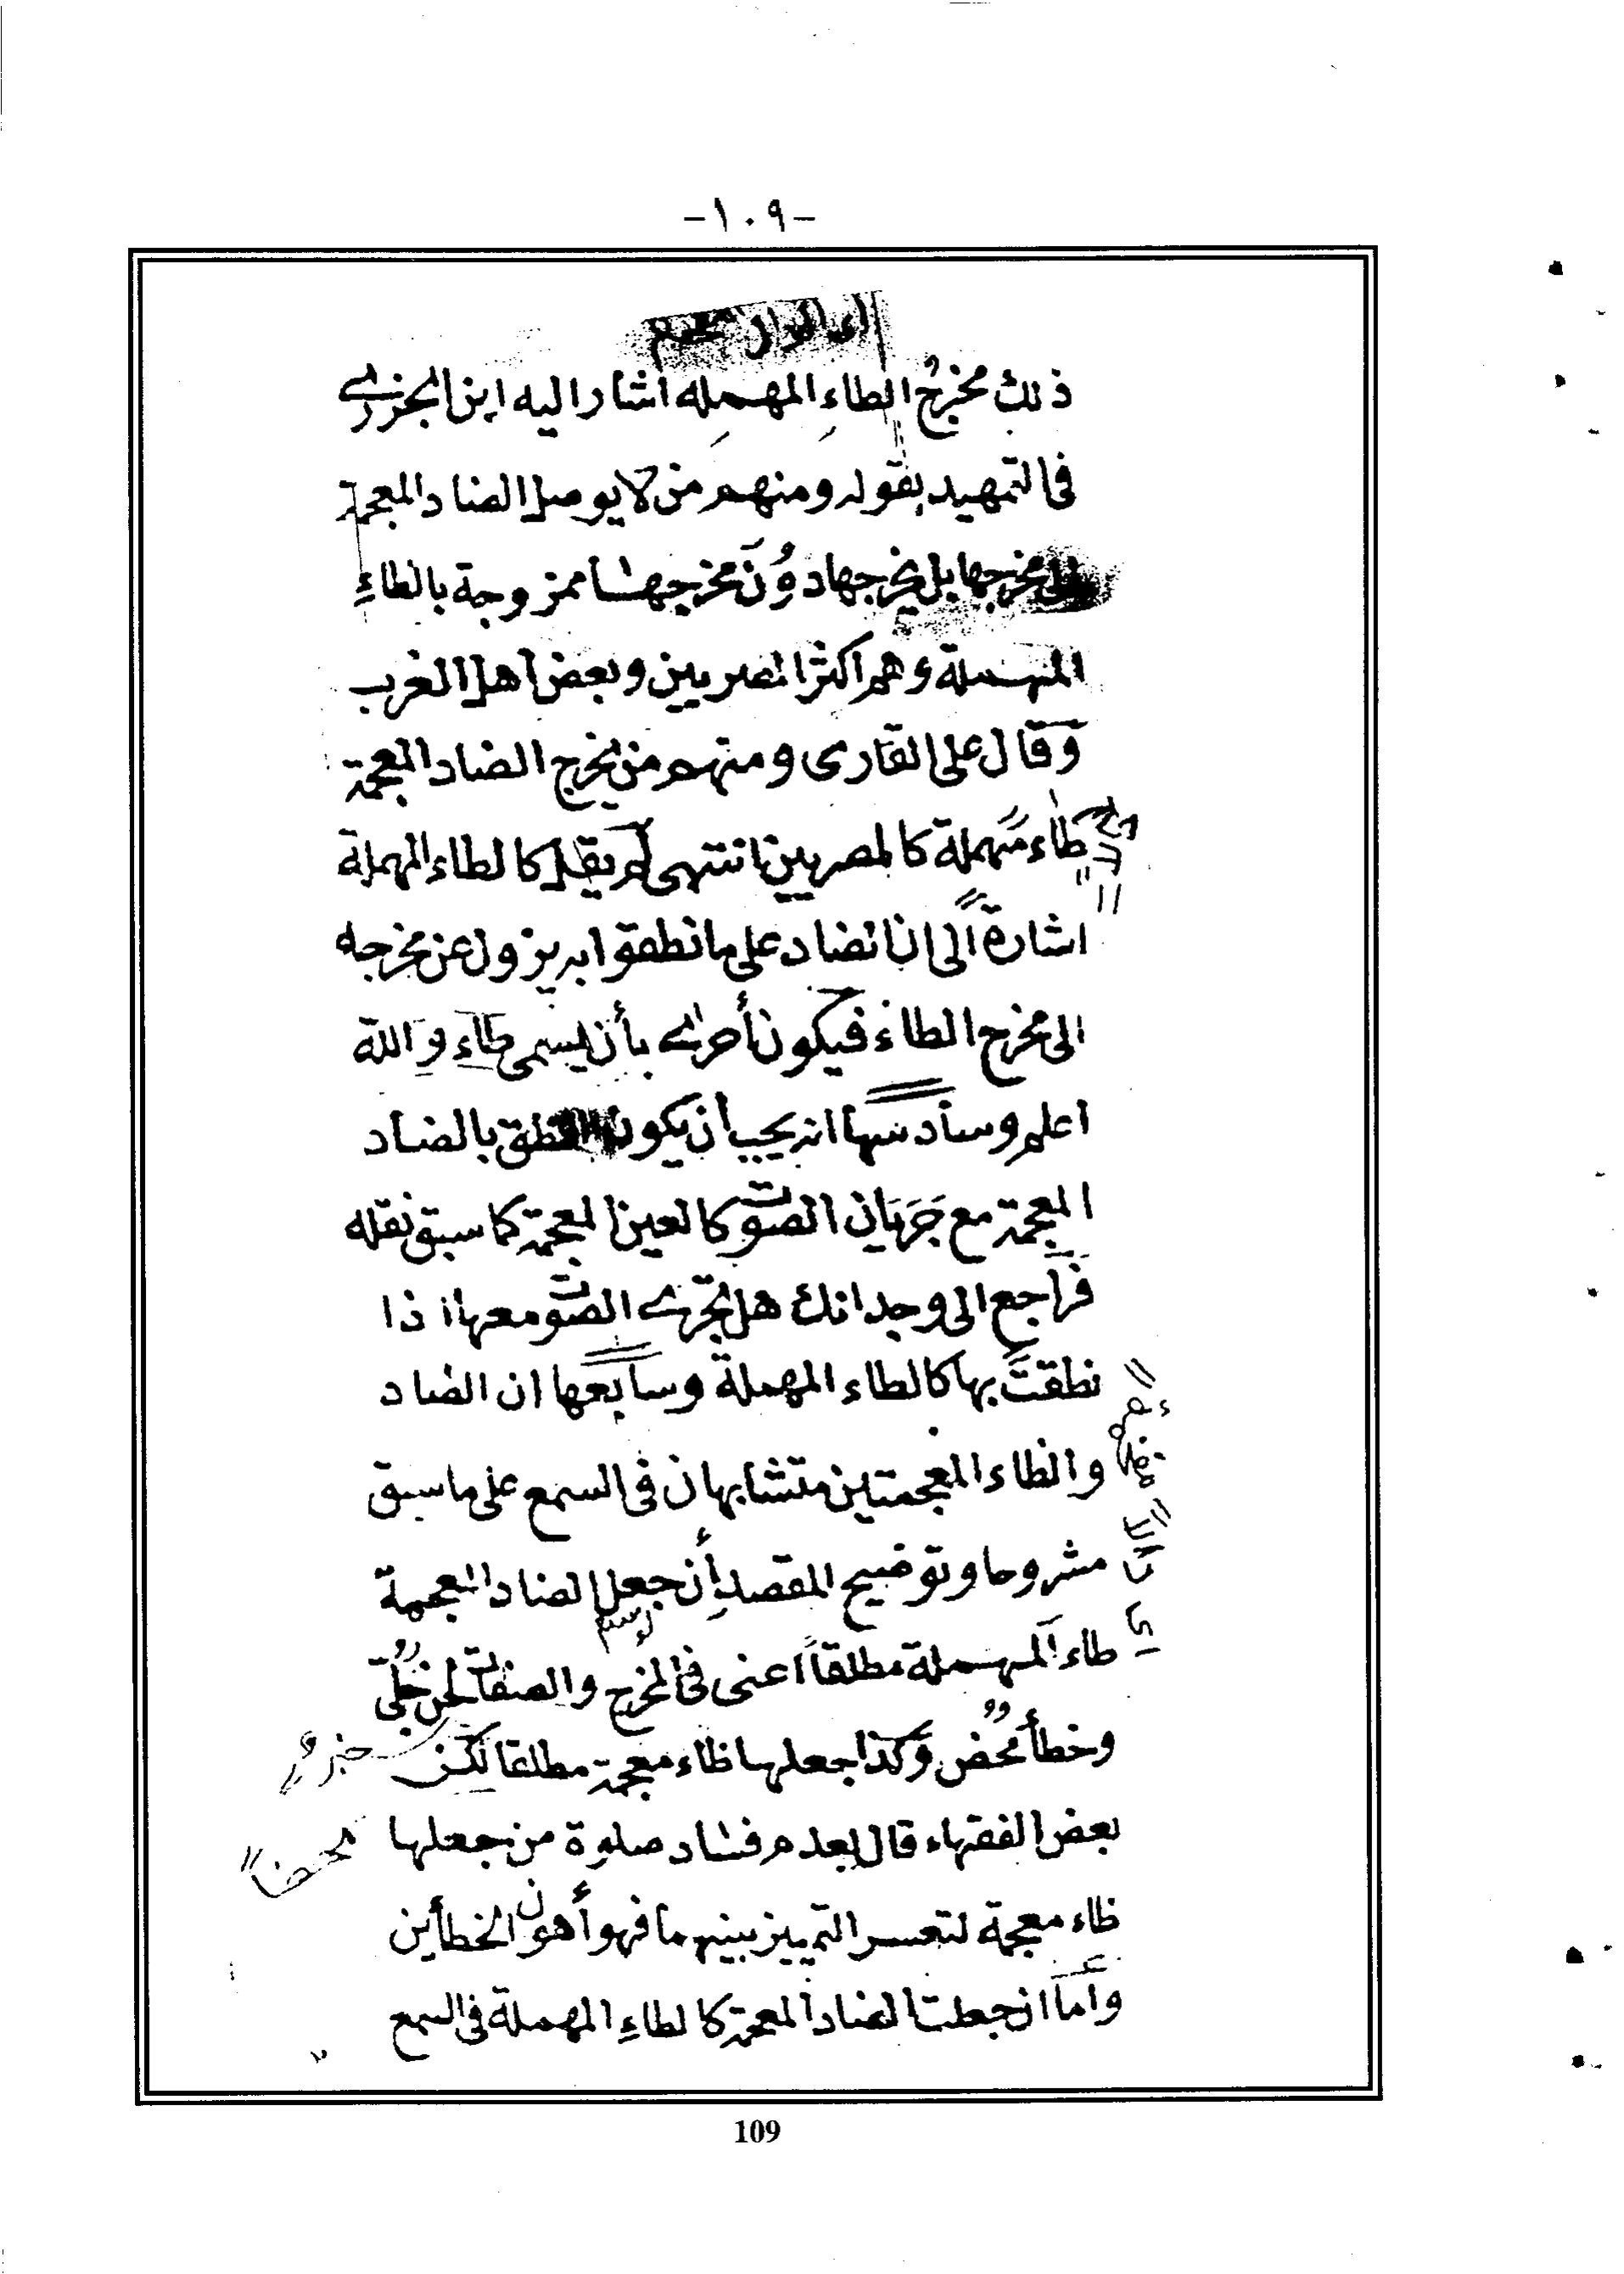 -١٠٩-
ذلك مخرجُ الطاءِ المهملة اشار اليه ابن الجزرى
فى التمهيد بقوله ومنهم من لا يوصل الضاد المعجمة
الى مخرجها بل يخرجها دُونَ مخرجها ممزوجة بالطاءِ
المهملة وهم اكثر المصريين وبعض اهل الغرب
وقال على القارى ومنهم من يخرج الضاد المعجمة
طاء مهملة كالمصريين انتهى لم يقل كالطاء المهملة
اشارةً الى ان الضاد على ما نطقوا به يزول عن مخرجه
الى مخرج الطاء فيكون أحرى بأن يسمى طاء والله
اعلم وسادسها انه يجب أن يكون النطق بالضاد
المعجمة مع جَرَيان الصوت كالغين المعجمة كما سبق نقله
فراجع الى وجدانك هل يجرى الصوت معها اذا
نطقتَ بها كالطاء المهملة وسابعها ان الضاد
والظاء المعجمتين متشابهان فى السمع على ما سبق
مشروحا وتوضيح المقصد أن جعل الضاد المعجمة
طاء المهملة مطلقاً اعنى فى المخرج والصفات لحن جلىّ
وخطأ محض وكذا جعلها ظاء معجمة مطلقا لكن
خبر
بعض الفقهاء قال بعدم فساد صلوة من جعلها
محضاً
ظاء معجمة لتعسر التمييز بينهما فهو أهون الخطأين
وأما ان جعلت الضاد المعجمة كالطاءِ المهملة فى السمع
109